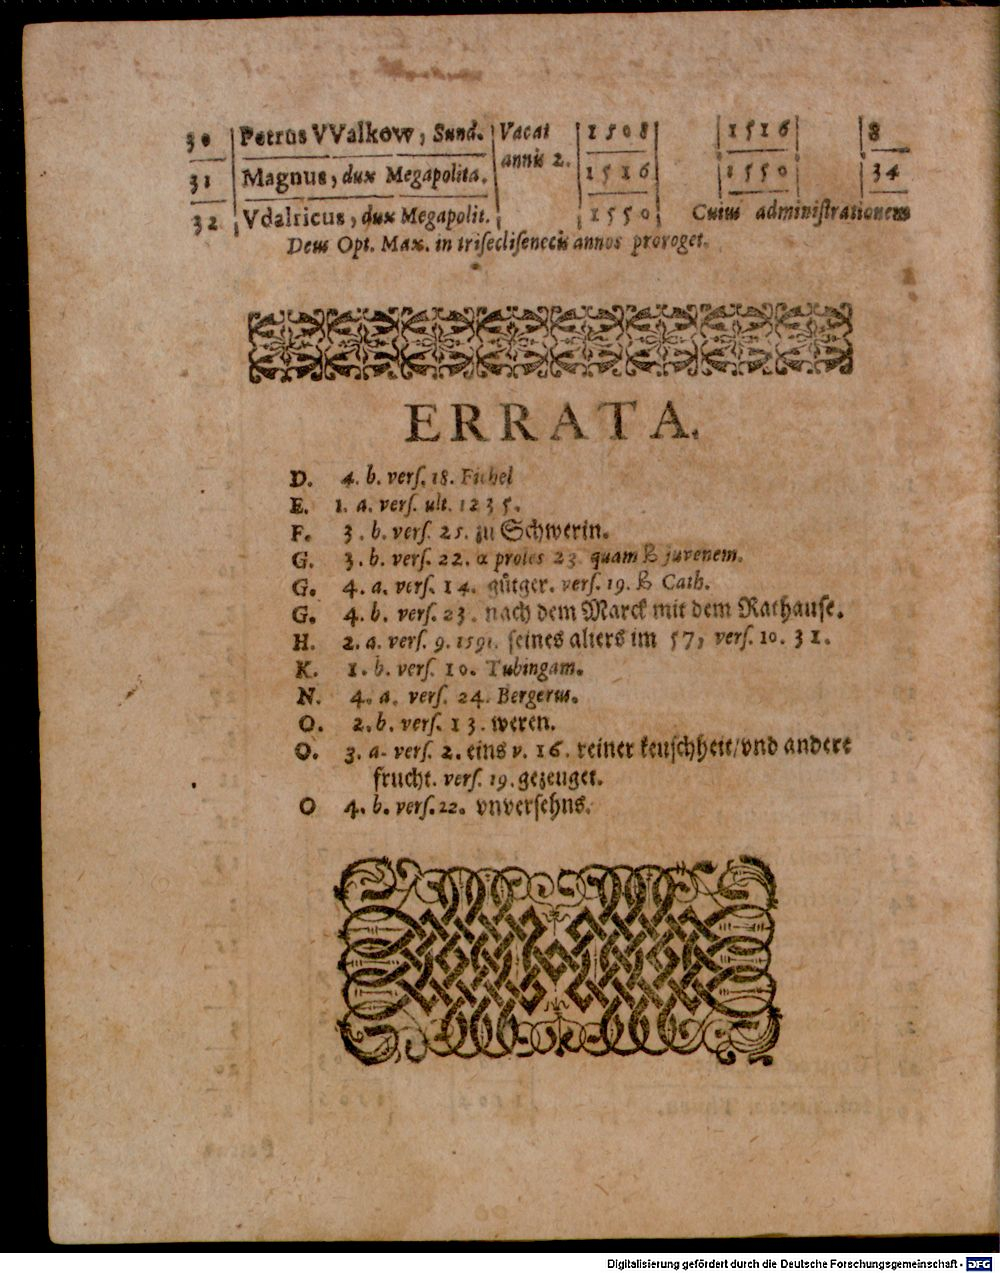 30 Petrus VValkow, Sund. Vacat 1508 1516 8
annis 2.
31 Magnus, dux Megapolita. 1516 1550 34
32 Vdalricus, dux Megapolit. 1550 Cuius administrationem
Deus Opt. Max. in triseclisenecis annos proroget.
ERRATA.
D. 4. b. vers. 18. Fichel
E. 1. a. vers. ult. 1235.
F. 3. b. vers. 25. zu Schwerin.
G. 3. b. vers. 22. α proles 23 quam & juvenem.
G. 4. a. vers. 14. gůtger. vers. 19. & Cath.
G. 4. b. vers. 23. nach dem Marck mit dem Rathause.
H. 2. a. vers. 9. 1591. seines alters im 57, vers. 10. 31.
K. 1. b. vers. 10. Tubingam.
N. 4. a. vers. 24. Bergerus.
O. 2. b. vers. 13. weren.
O. 3. a. vers. 2. eins v. 16. reiner keuschheit/vnd andere
frucht. vers. 19. gezeuget.
O 4. b. vers. 22. vnversehns.
Digitalisierung gefördert durch die Deutsche Forschungsgemeinschaft - DFG